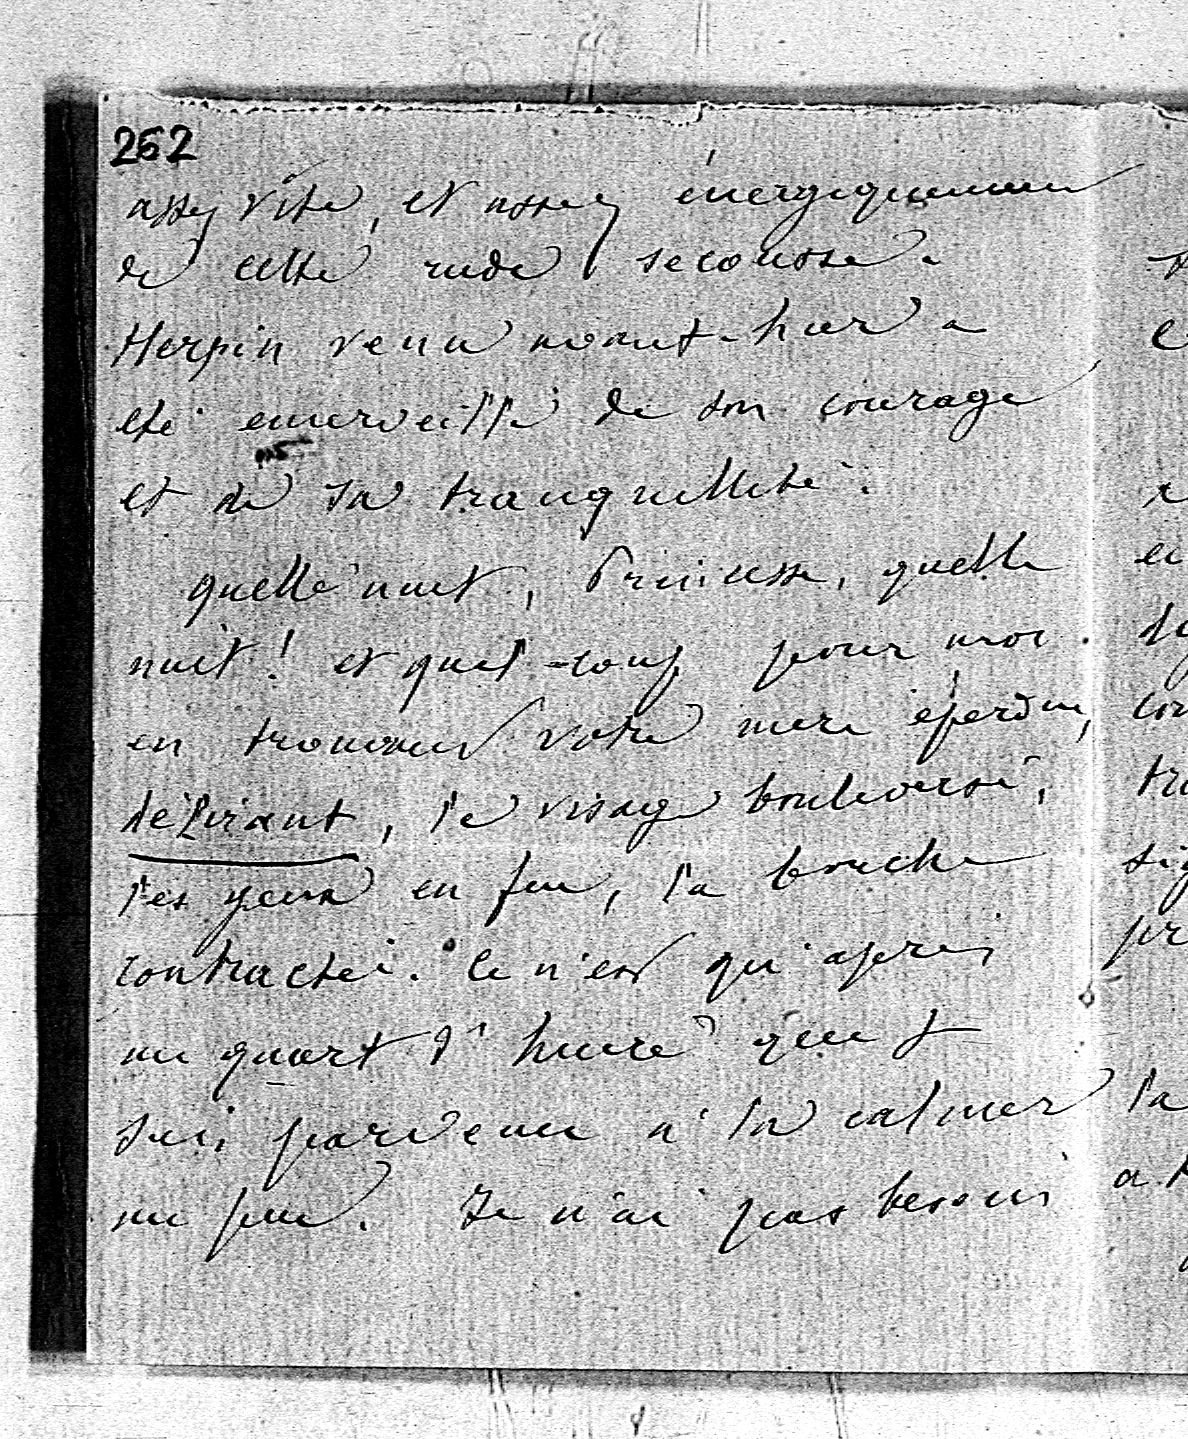 262
assez vite, et assez énergiquement
de cette rude secousse.
Herpin venu avant-hier a
été émerveillé de son courage
et de sa tranquillité.
quelle nuit, Princesse, quelle
nuit! et quel coup pour moi.
en trouvant votre mère éperdue,
délirant, le visage bouleversé,
les yeux en feu, la bouche
contractée. Ce n'est qu'après
un quart d'heure que je
suis parvenu à la calmer
un peu. Je n'ai pas besoin